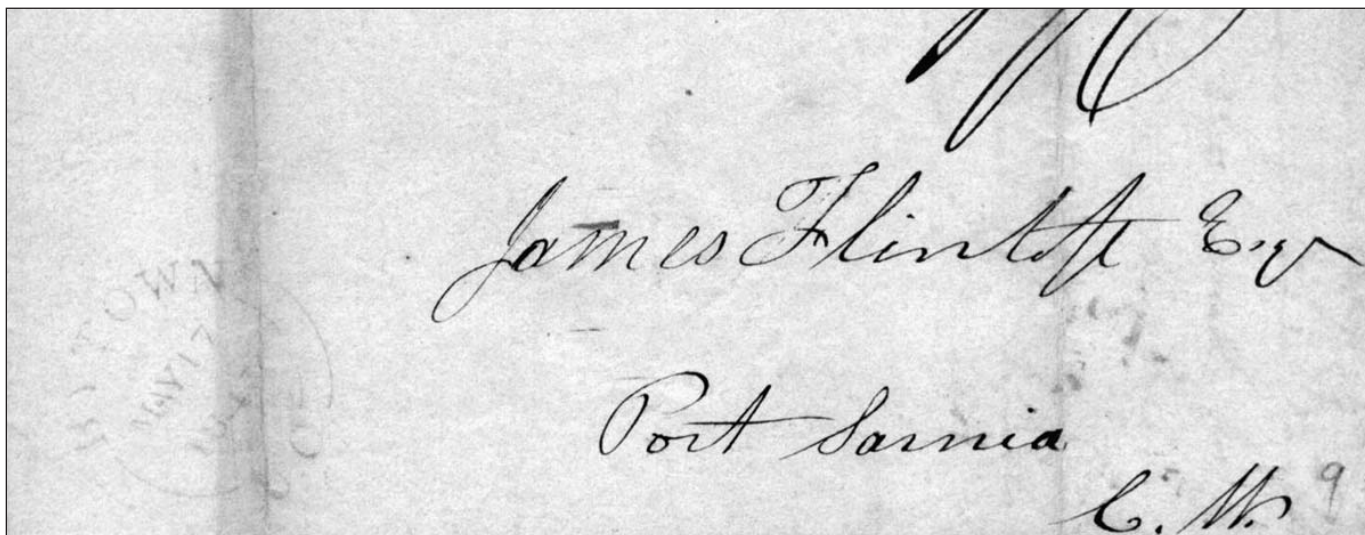 James Flintoft Esqr
Port Sarnia
C.W.
9
BYTOWN
MAY 17
U.C.